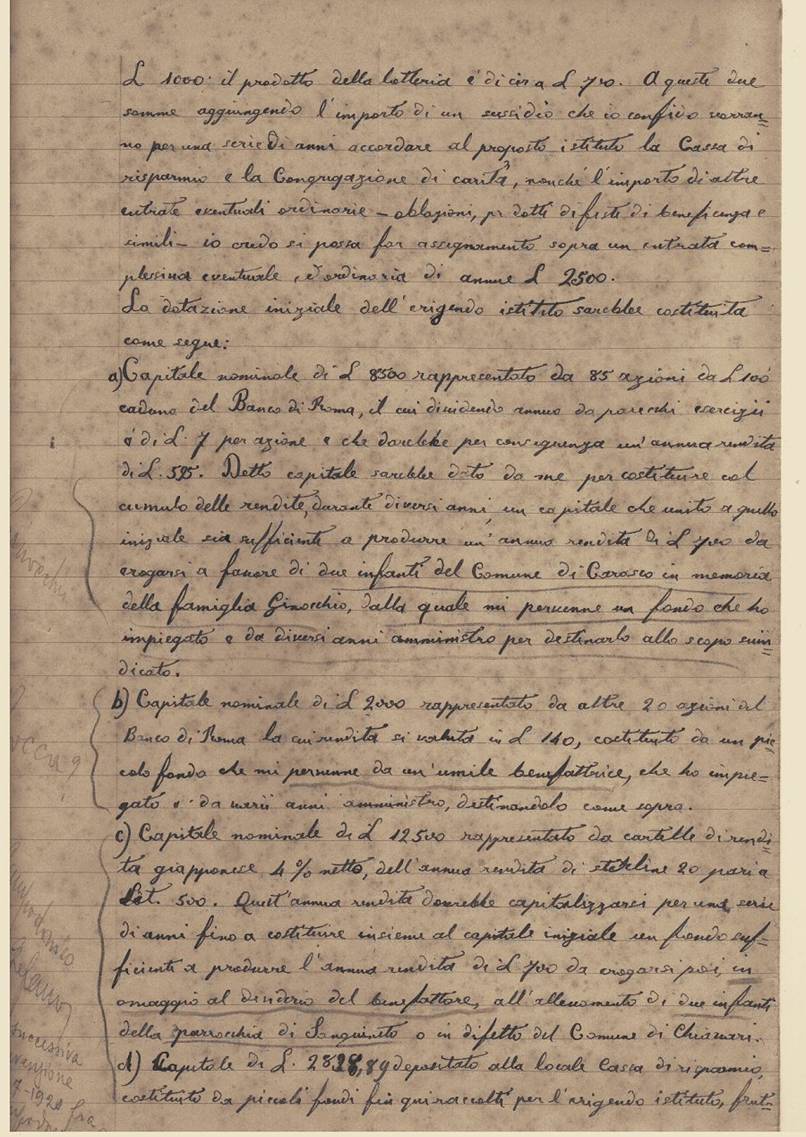 L 1000: il prodotto della lotteria è di circa L 700. A queste due
somme aggiungendo l'importo di un sussidio che io confido vorran=
no per una serie di anni accordare al proposto istituto la Cassa di
risparmio e la Congregazione di carità, nonchè l'importo di altre
entrate eventuali ordinarie - oblazioni, prodotti di feste di beneficenza e
simili - io credo si possa far assegnamento sopra un entrata com=
plessiva eventuale, ed ordinaria di annue L 2500.
La dotazione iniziale dell'erigendo istituto sarebbe costituita
come segue:
a) Capitale nominale di L 8500 rappresentato da 85 azioni da L 100
caduna del Banco di Roma, il cui dividendo annuo da parecchi esercizii
è di L. 7 per azione e che darebbe per conseguenza un'annua rendita
di L. 595. Detto capitale sarebbe dato da me per costituire col
cumulo delle rendite, durante diversi anni, un capitale che unito a quello
iniziale sia sufficiente a produrre un'annua rendita di L 700 da
erogarsi a favore di due infanti del Comune di Carasco in memoria
della famiglia Ginocchio, dalla quale mi pervenne un fondo che ho
impiegato e da diversi anni amministro per destinarlo allo scopo suin=
dicato.
b) Capitale nominale di L 2000 rappresentato da altre 20 azioni del
Banco di Roma la cui rendita si valuta in L 140, costituito da un pic=
colo fondo che mi pervenne da un'umile benefattrice, che ho impie=
gato e da varii anni amministro, destinandolo come sopra.
c) Capitale nominale di L 12500 rappresentato da cartelle di rendi=
ta giapponese 4% netto, dell'annua rendita di sterline 20 pari a
Lit. 500. Quest'annua rendita dovrebbe capitalizzarsi per una serie
di anni fino a costituire insieme al capitale iniziale un fondo suf=
ficiente a produrre l'annua rendita di L 700 da erogarsi poi, in
omaggio al desiderio del benefattore, all'allevamento di due infanti
della parrocchia di Sanguineto o in difetto del Comune di Chiavari.
d) Capitale di L. 2828,89 depositato alla locale Cassa di risparmio,
costituito da piccoli fondi fin qui raccolti per l'erigendo istituto, frut=
successiva
7-1920